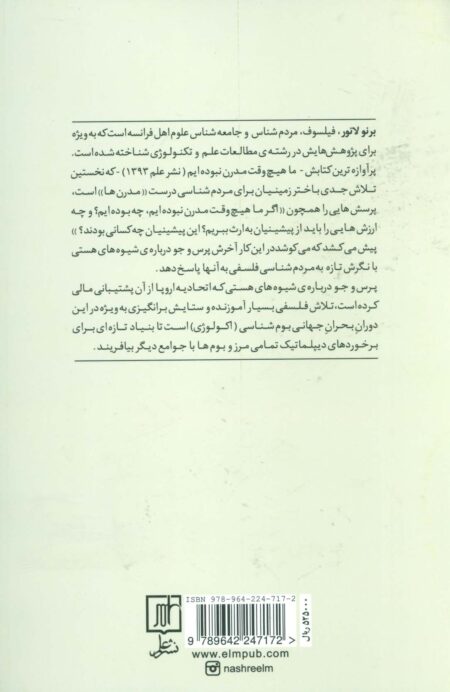 برنو لاتور، فیلسوف، مردم شناس و جامعه شناس علوم اهل فرانسه است که به ویژه
برای پژوهش هایش در رشته ی مطالعات علم و تکنولوژی شناخته شده است.
پرآوازه ترین کتابش - ما هیچ وقت مدرن نبوده ایم (نشر علم ۱۳۹۳) - که نخستین
تلاش جدی باختر زمینیان برای مردم شناسی درست «مدرن ها» است،
پرسش هایی را همچون «اگر ما هیچ وقت مدرن نبوده ایم، چه بوده ایم؟ و چه
ارزش هایی را باید از پیشینیان به ارث ببریم؟ این پیشینیان چه کسانی بودند؟»
پیش می کشد که می کوشد در این کار آخرش پرس و جو درباره ی شیوه های هستی
با نگرش تازه به مردم شناسی فلسفی به آنها پاسخ دهد.
پرس و جو درباره ی شیوه های هستی که اتحادیه اروپا از آن پشتیبانی مالی
کرده است، تلاش فلسفی بسیار آموزنده و ستایش برانگیزی به ویژه در این
دوران بحران جهانی بوم شناسی (اکولوژی) است تا بنیاد تازه ای برای
برخوردهای دیپلماتیک تمامی مرز و بوم ها با جوامع دیگر بیافریند.
ISBN 978-964-224-717-2
9 789642 247172
۵۲۵۰۰۰ ریال
نشر علم
www.elmpub.com
nashreelm